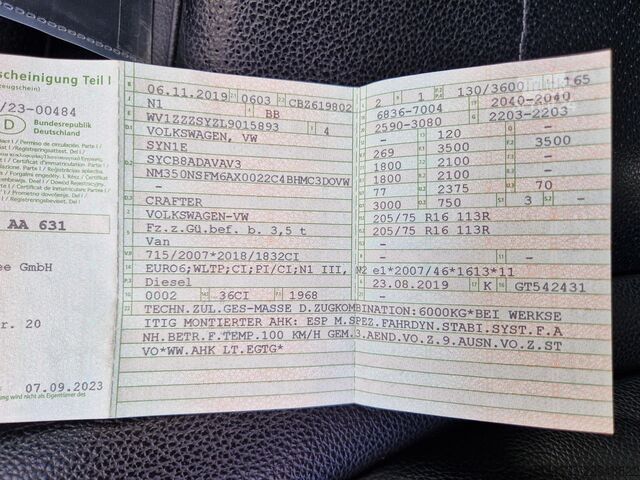 scheinigung Teil I
zeugschein)
/23-00484
D Bundesrepublik
Deutschland
AA 631
ee GmbH
r. 20
07.09.2023
06.11.2019 0603 CBZ619802
N1 BB
WV1ZZZSYZL9015893 4
VOLKSWAGEN, VW
SYN1E
SYCB8ADAVAV3
NM350NSFM6AX0022C4BHMC3DOVW
–
CRAFTER
VOLKSWAGEN-VW
Fz.z.Gü.bef. b. 3,5 t
Van
715/2007*2018/1832CI
EURO6;WLTP;CI;PI/CI;N1 III, N2
Diesel
0002 36CI 1968
2 1 130/3600 165
6836-7004 2040-2040
2590-3080 2203-2203
– 120 –
269 3500 3500
1800 2100 –
1800 2100 –
77 2375 70
3000 750 3 –
205/75 R16 113R
205/75 R16 113R
–
–
e1*2007/46*1613*11
23.08.2019 K GT542431
TECHN.ZUL.GES-MASSE D.ZUGKOMBINATION:6000KG*BEI WERKSE
ITIG MONTIERTER AHK: ESP M.SPEZ.FAHRDYN.STABI.SYST.F.A
NH.BETR.F.TEMP.100 KM/H GEM.3.AEND.VO.Z.9.AUSN.VO.Z.ST
VO*WW.AHK LT.EGTG*